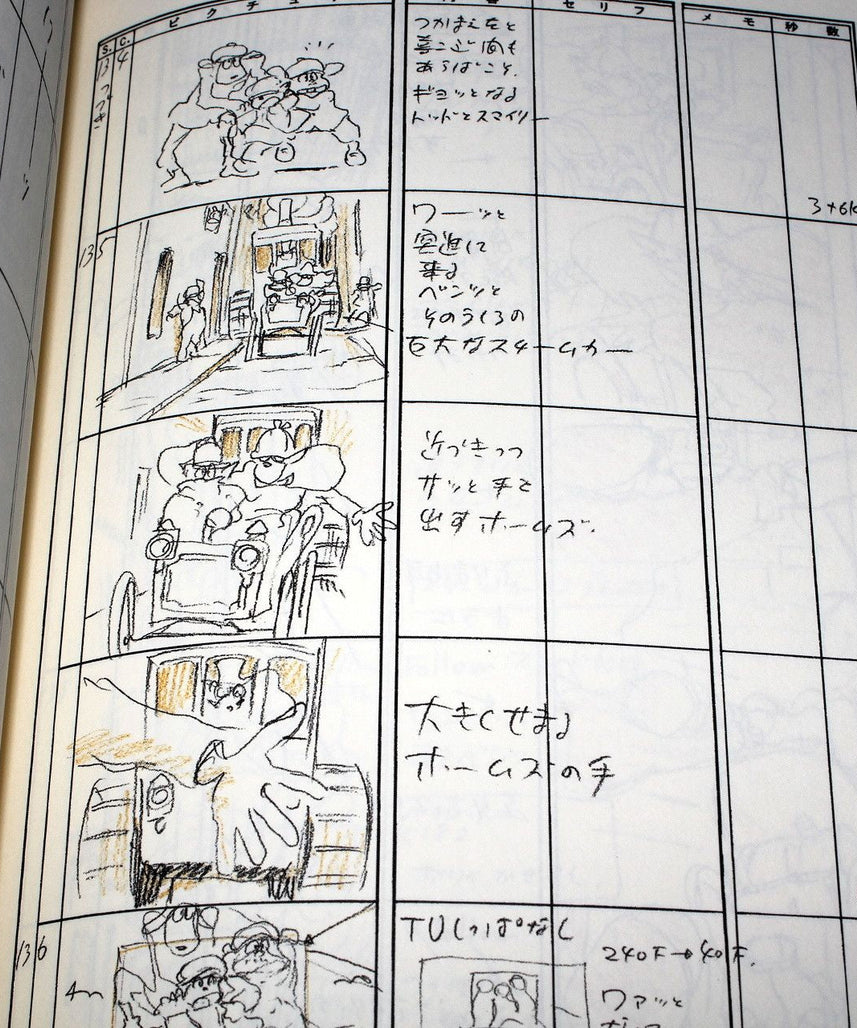 S. C. ピクチュ 内容 セリフ メモ 秒数
13 4
つづき
つかまえたと
喜こぶ間も
あらばこそ.
ギョッとなる
トッドとスマイリー
3+6k
135
ワーッと
突進に
来る
ベンツと
そのうしろの
巨大なスチームカー
近づきつつ
サッと手を
出すホームズ.
大きくせまる
ホームズの手
136
TUしっぱなし
240F→40F.
ワァッと